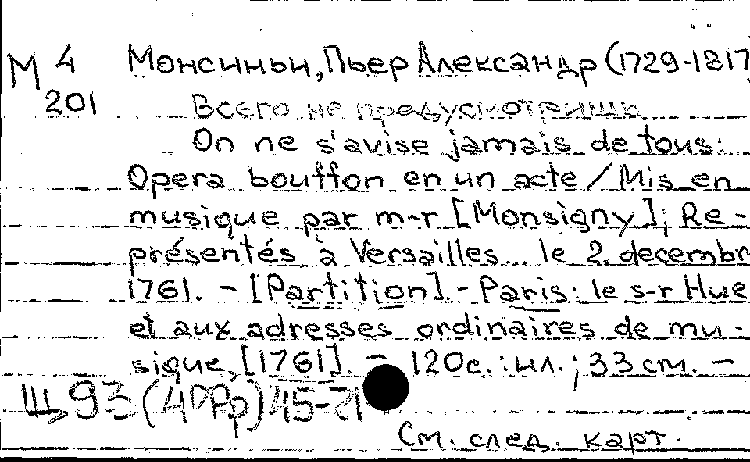 М 4 Монсиньи, Пьер Александр (1729-1817
201 Всего не предусмотришь
On ne s'avise jamais de tous:
Opera bouffon en un acte / Mis en
musique par m-r [Monsigny]; Re-
présentés à Versailles... le 2. decembr
1761. - [Partition] - Paris: le s-r Hue
et aux adresses ordinaires de mu-
sique, [1761]. - 120с.: ил.; 33 см. -
Щ93(4Фр)45-21
См. след. карт.